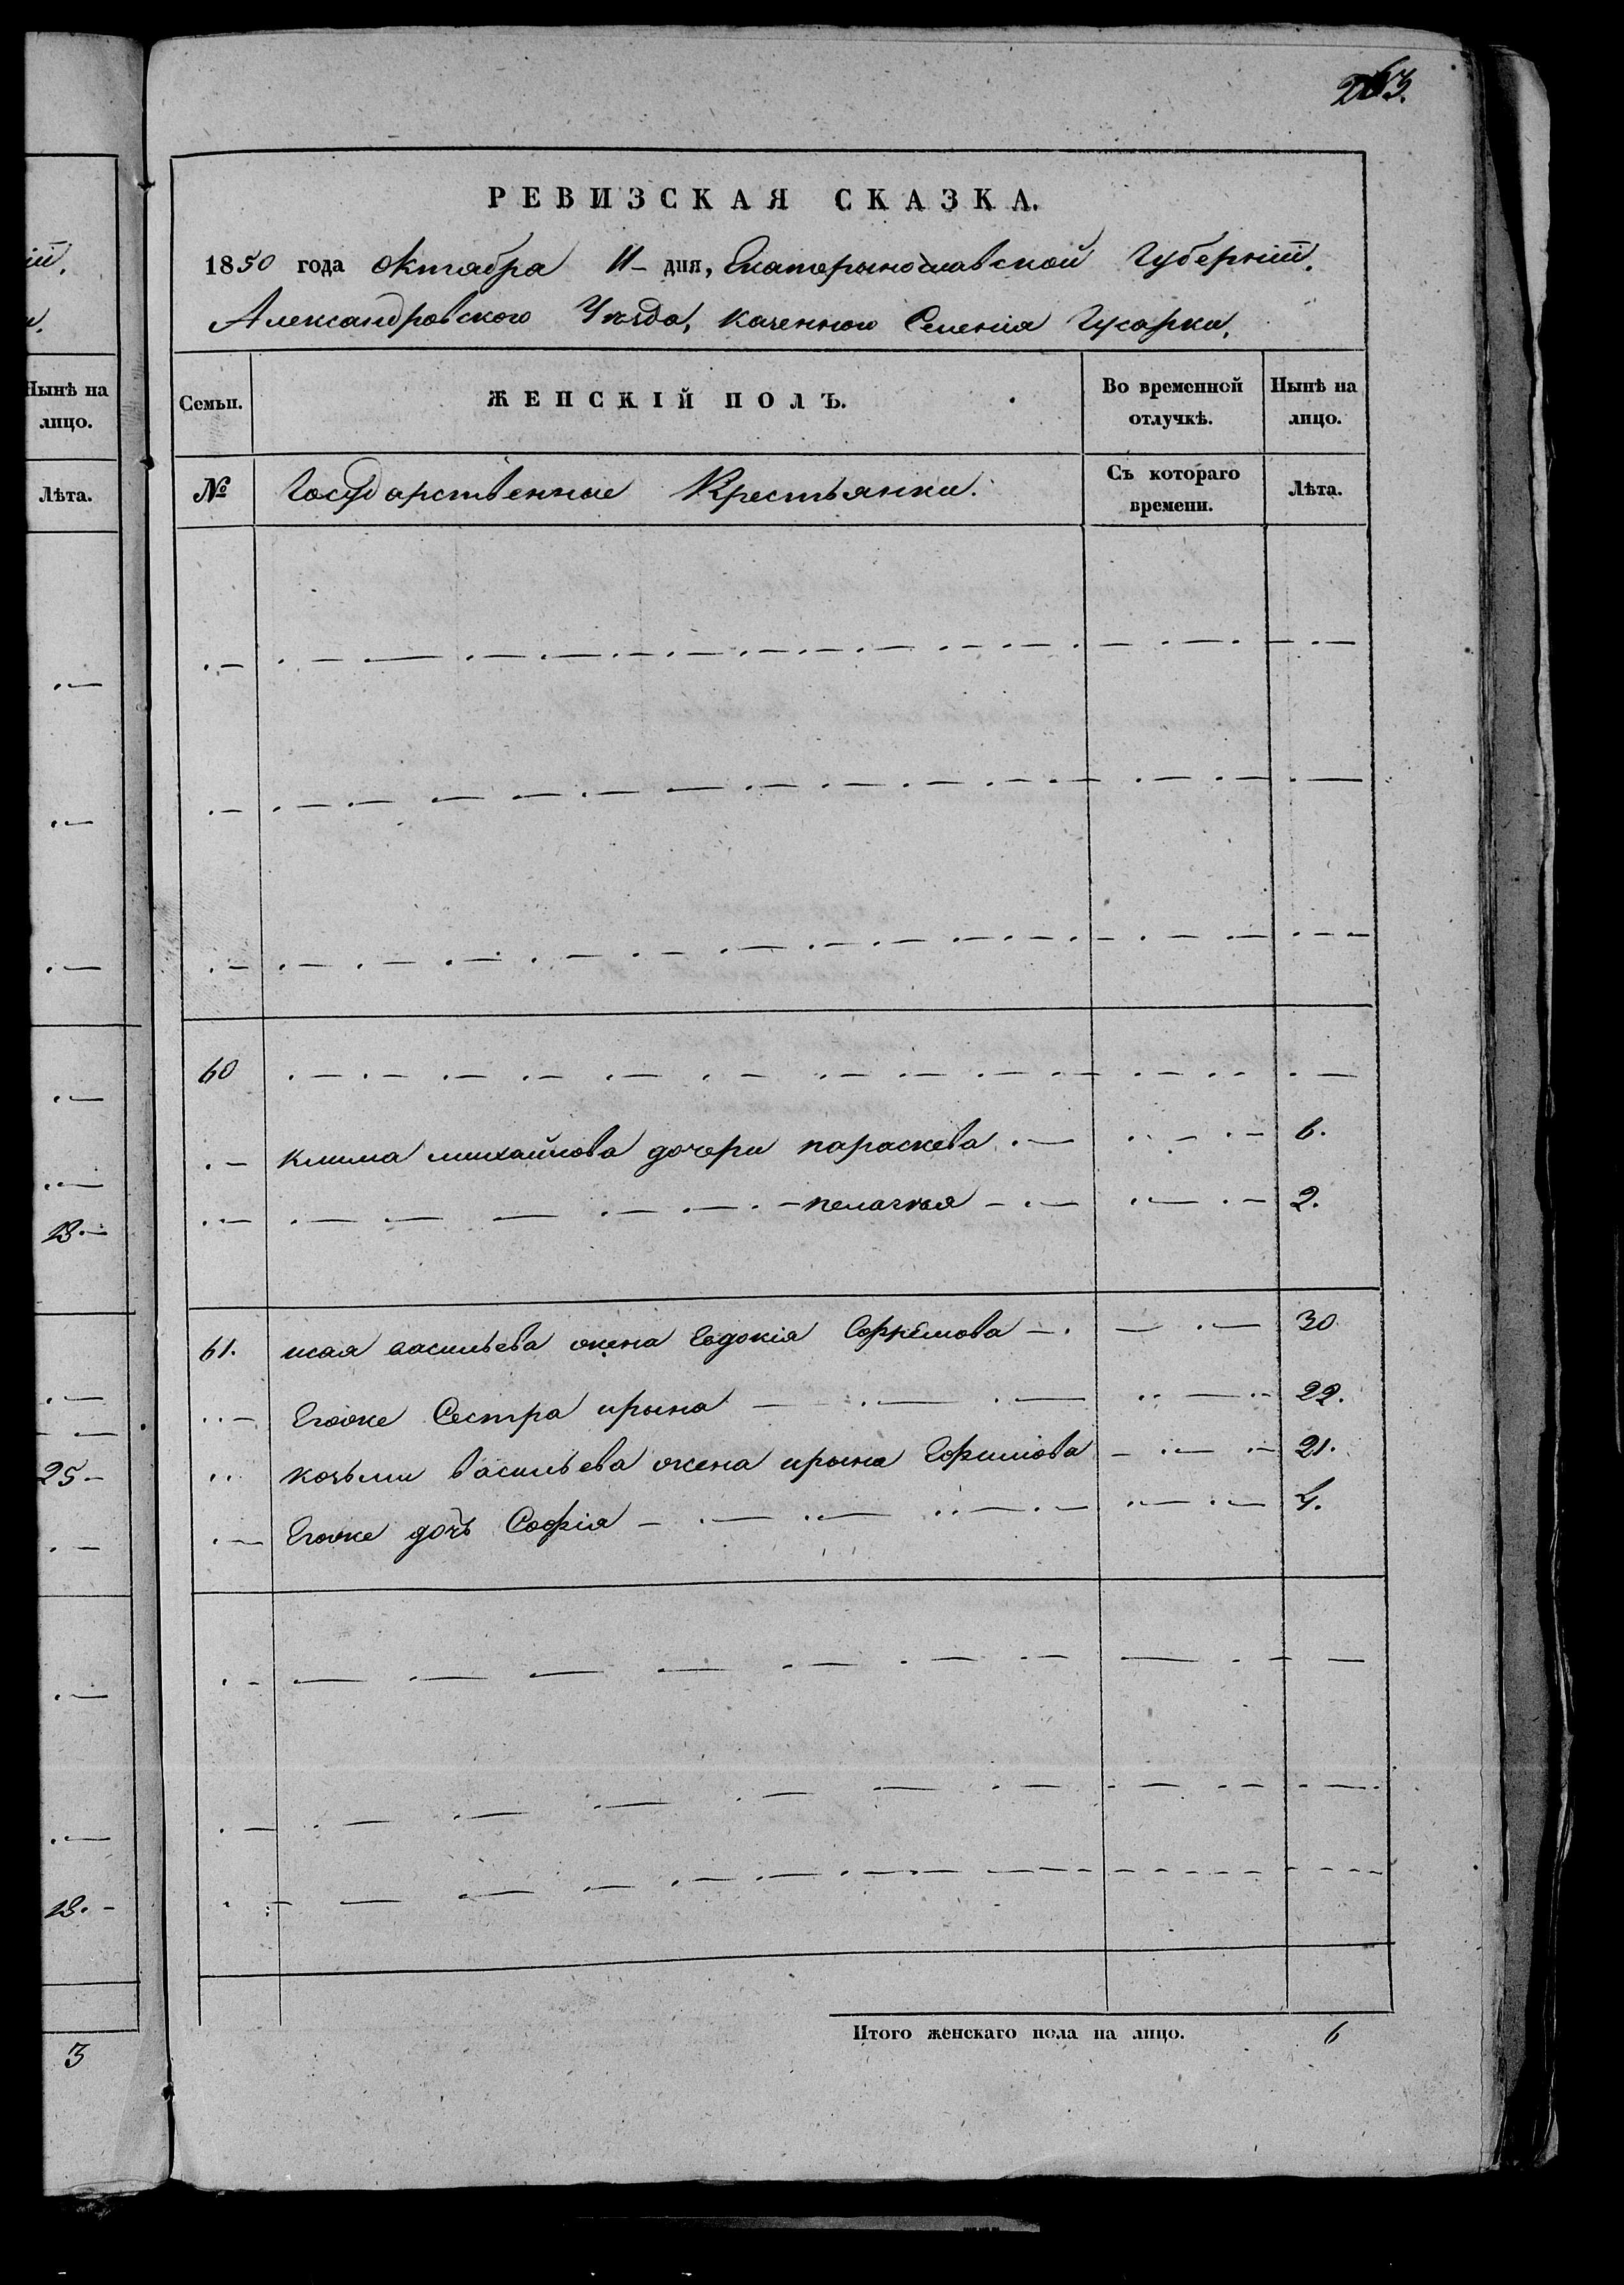 263.
ій,
Нынѣ на
лицо.
Лѣта.
13.
25
13.
3
РЕВИЗСКАЯ СКАЗКА.
1850 года октября 11 дня, Екатериносла​вской Губерніи,
Александровского Уезда, казенного Селенія Гусарки,
Семьи. ЖЕНСКІЙ ПОЛЪ. Во временной отлучкѣ. Нынѣ на лицо.
№ Государственные Крестьянки. Съ котораго времени. Лѣта.
60
клима михайлова дочери параскева 6.
пелагия 2.
61. исая васильева жена Евдокія 30
Егоже Сестра ирына 22.
козьми васильева жена ирына Ефимова 21.
Егоже дочь Софія 4.
Итого женскаго пола на лицо. 6